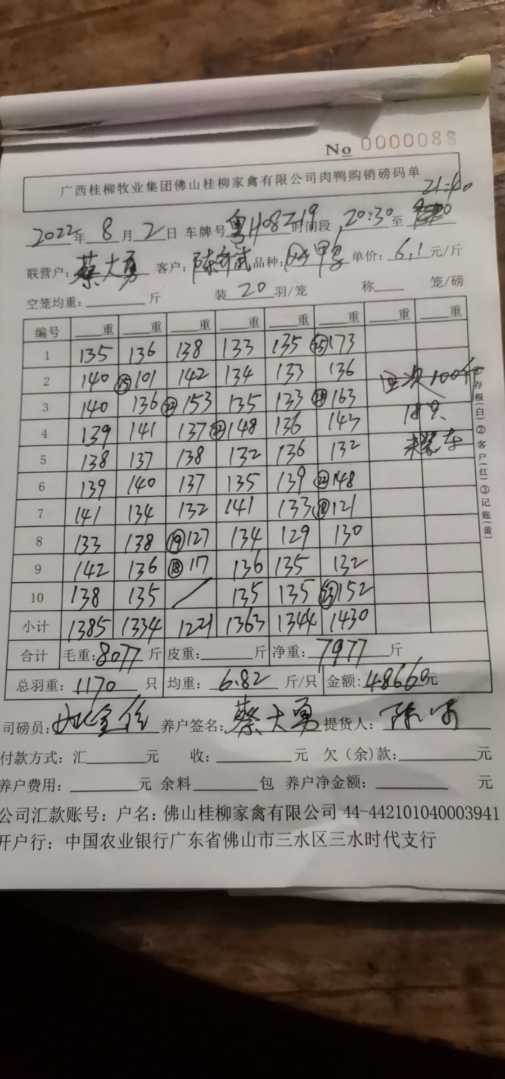 No 0000088
广西桂柳牧业集团佛山桂柳家禽有限公司肉鸭购销磅码单
2022年 8 月 2 日 车牌号 粤H08Z19 时间段 20:30 至 21:40
联营户: 蔡大勇 客户: 品种: 单价: 6.1 元/斤
空笼均重: 斤 装 20 羽/笼 称 笼/磅
编号 重 重 重 重 重 重 重 重
1 135 136 138 133 135 173
2 140 101 142 134 133 136 100斤
3 140 136 153 135 133 163
4 139 141 137 148 136 143
5 138 137 138 132 136 132
6 139 140 137 135 139 148
7 141 134 132 141 133 121
8 133 138 ⑲127 134 129 130
9 142 136 ⑱117 136 135 132
10 138 135 / 135 135 152
小计 1385 1334 1221 1363 1344 1430
合计 毛重: 8077 斤 皮重: 斤 净重: 7977 斤
总羽重: 1170 只 均重: 6.82 斤/只 金额: 48660元
司磅员: 养户签名: 蔡大勇 提货人:
付款方式: 汇 元 收: 元 欠(余)款: 元
养户费用: 元 余料 包 养户净金额: 元
公司汇款账号: 户名: 佛山桂柳家禽有限公司 44-442101040003941
开户行: 中国农业银行广东省佛山市三水区三水时代支行
存根(白)②客户(红)③记账(黄)